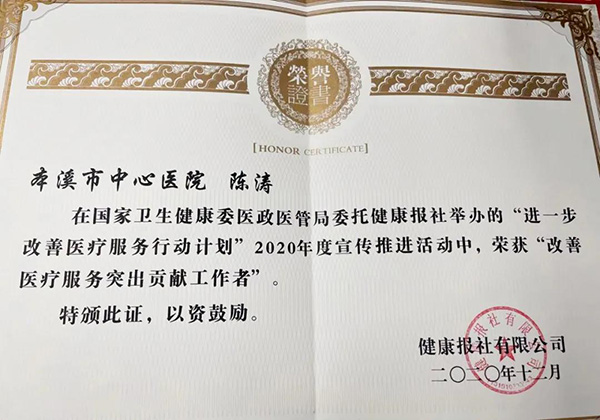 榮譽
證書
[HONOR CERTIFICATE]
本溪市中心医院 陈涛
在国家卫生健康委医政医管局委托健康报社举办的“进一步
改善医疗服务行动计划”2020年度宣传推进活动中，荣获“改善
医疗服务突出贡献工作者”。
特颁此证，以资鼓励。
健康报社有限公司
二〇二〇年十二月